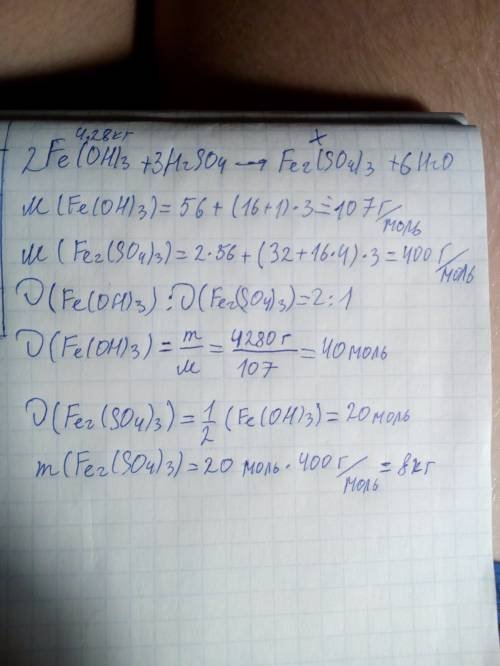 4,28кг x
2Fe(OH)3 + 3H2SO4 → Fe2(SO4)3 + 6H2O
M(Fe(OH)3) = 56 + (16+1)·3 = 107 г/моль
M(Fe2(SO4)3) = 2·56 + (32+16·4)·3 = 400 г/моль
ν(Fe(OH)3) : ν(Fe2(SO4)3) = 2:1
ν(Fe(OH)3) = m/M = 4280г/107 = 40 моль
ν(Fe2(SO4)3) = 1/2 (Fe(OH)3) = 20 моль
m(Fe2(SO4)3) = 20 моль · 400 г/моль = 8кг